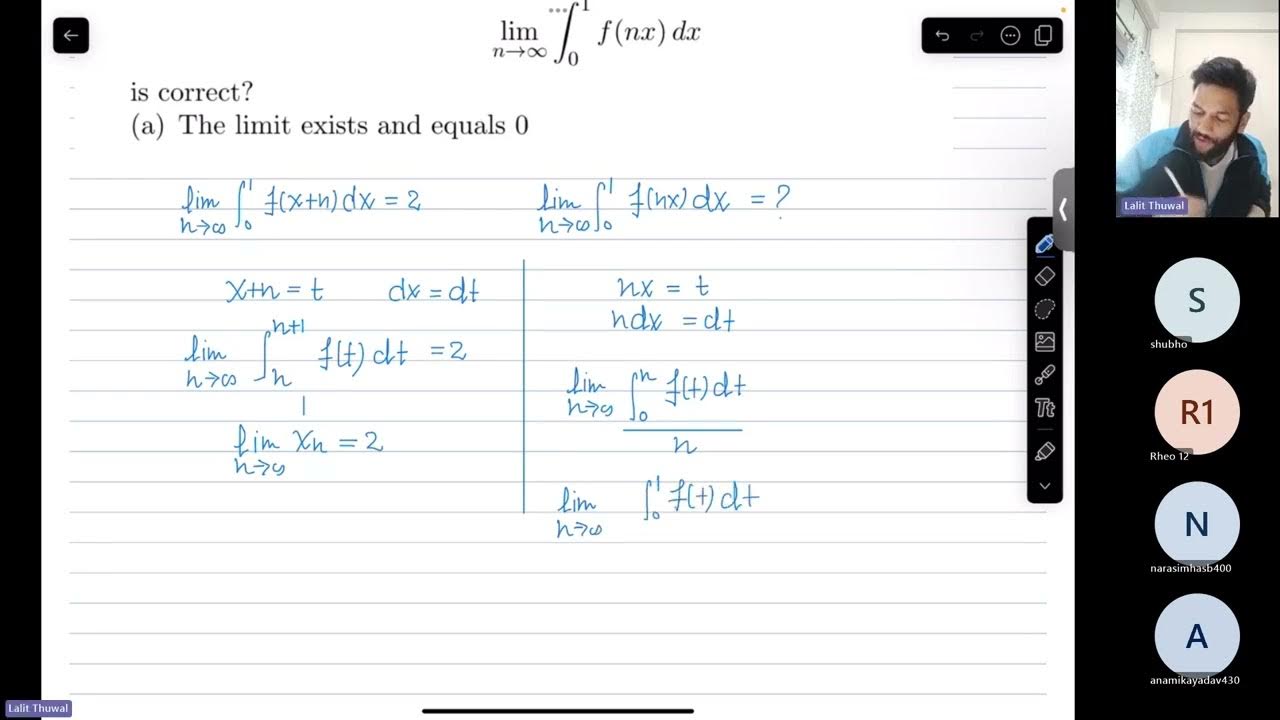 lim n→∞ ∫₀¹ f(nx) dx
is correct?
(a) The limit exists and equals 0
lim n→∞ ∫₀¹ f(x+n) dx = 2
lim n→∞ ∫₀¹ f(nx) dx = ?
x+n = t dx = dt
lim n→∞ ∫ₙⁿ⁺¹ f(t) dt = 2
lim n→∞ xₙ = 2
nx = t
ndx = dt
lim n→∞ ∫₀ⁿ f(t) dt / n
lim n→∞ ∫₀¹ f(t) dt
Tt
Lalit Thuwal
S
shubho
R1
Rheo 12
N
narasimhasb400
A
anamikayadav430
Lalit Thuwal